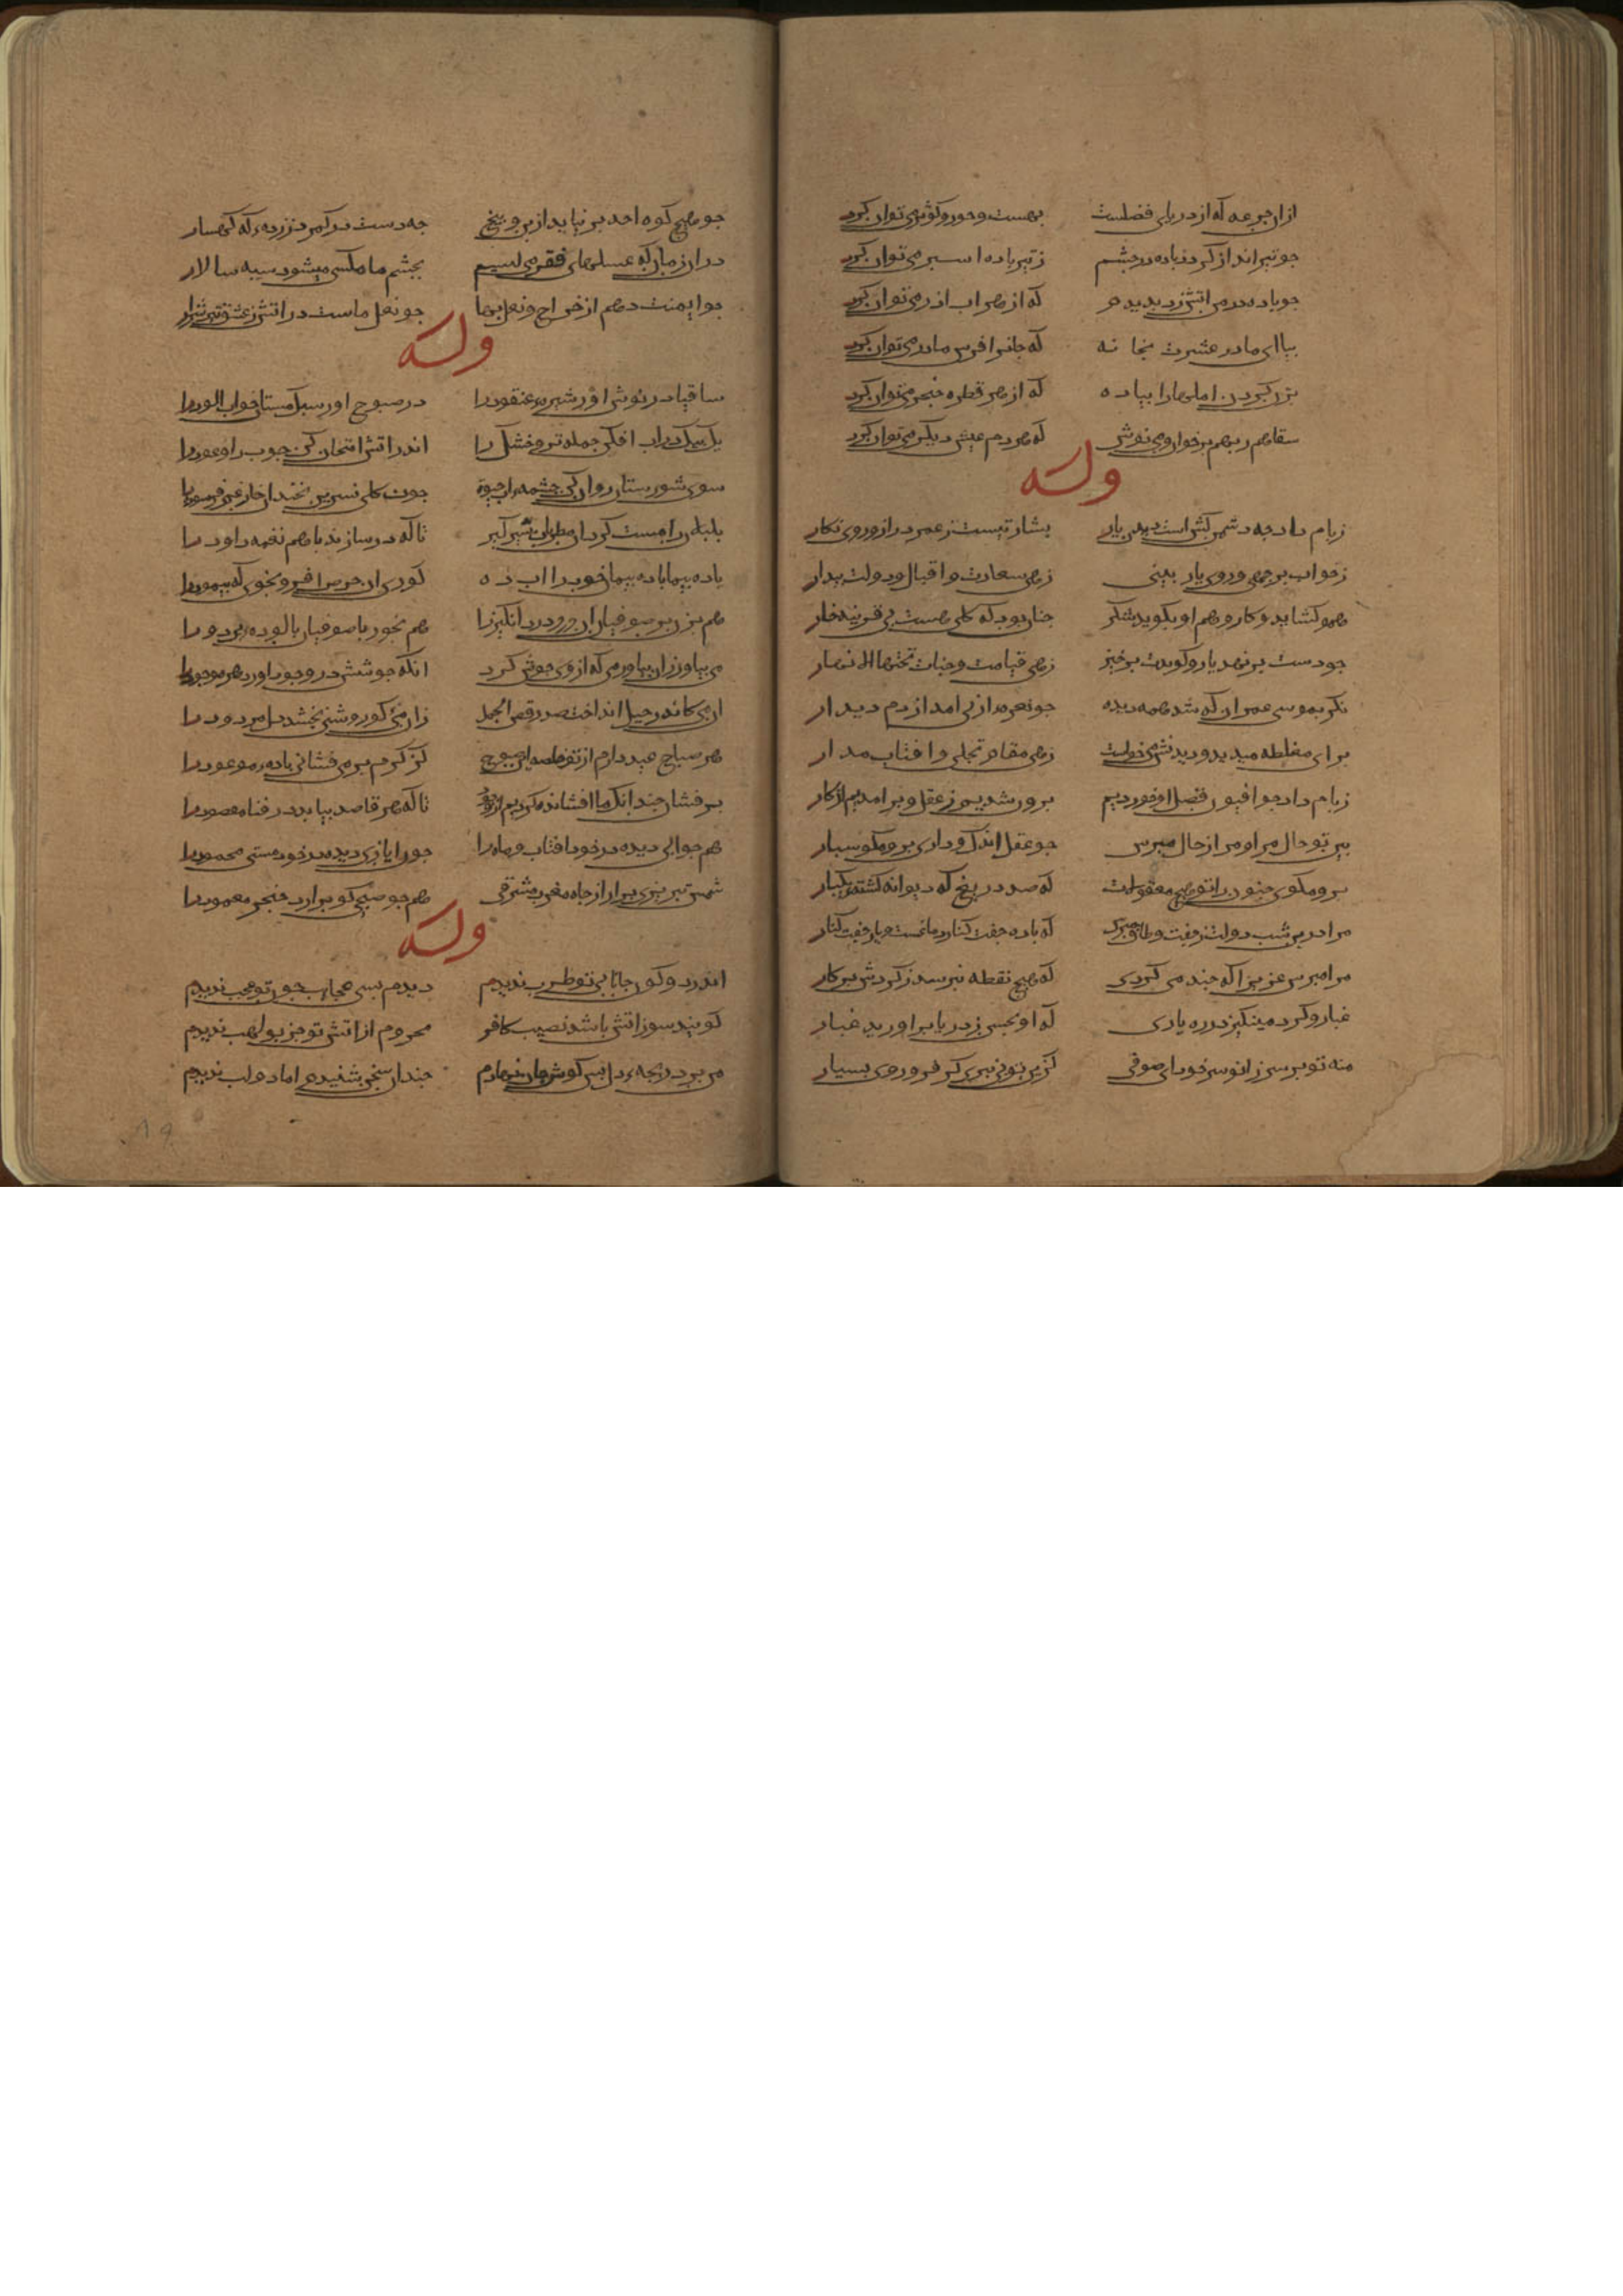 ازان جرعه که از دریای فضلست بهست و حور و کوثر می توان کرد
جو تیر انداز کردذ باده در جشم زتیر باده اسپر می توان کرد
جو باده در من اتش زد بدیدم که از هر اب اذر می توان کرد
بیا ای مادر عشرت بخانه که جانرا فرس مادر می توان کرد
بزر کردن املی مارا بیاده که از هر قطره خنجر می توان کرد
سقاهم ربهم برخوان و می نوش که هر دم عیش دیکر می توان کرد
وله
زبام داد جه دشمن کش است دیدن یار بشارتیست ز عمر دراز و روی نکار
زخواب برجهی و روی یار بینی زهی سعادت و اقبال و دولت بیدار
همو کشاید و کار و هم او بکوید شکر جنان بود که کلی رست بی قرینه خار
جو دست بر نهد یار و کویدت برخیز زهی قیامت و جنات تحتها الانهار
بکر بموسی عمران که شد همه دیده جو نعره ارنی امد از دم دیدار
برای مغلطه میدید و دیدنش می خواست زهی مقام تجلی و افتاب مدار
زبام داد جو افیون فضل او خوردیم برون شدیم ز عقل و برامدیم از کار
ببین تو حال مرا و مرا ز حال مپرس جو عقل اندک داری برو مکو بسیار
برو مکوی جنون را تو هیچ معقولات که صد دریغ که دیوانه کشته یکبار
مرا درین شب دولت ز جفت و طاق مپرس که باده جفت کنار دماغست و یار جفت کنار
مرا مپرس عزیزا که جند می کردی که هیچ نقطه نپرسد ز کردش برکار
غبار و کرد مینکیز در ره یاری که او بحسن ز دریا براورید غبار
منه تو بر سر زانو سر خود ای صوفی کزین تو پی نبری کر فرو روی بسیار
جو هیچ کوه احد بر نیاید از بن و بیخ جه دست در کمر زد زرده که کهسار
در ان زمان که عسلهای فقر می لیسیم بجشم ما مکسی میشود سپه سالار
جو ایمنت دهم از خراج و نعل بها جو نعل ماست در اتش ز عشق تیز شرار
وله
ساقیا در نوش اور شیره عنقود را در صبوح اور سبک مستان خواب الود را
یک بیک در اب افکن جمله تر و خشک را اندر اتش امتحان کن جوب را و عود را
سوی شورستان روان کن جشمه اب حیوة جون کل نسرین بخندان خار غم فرسود را
بلبلان را مست کردان مطربان شیر کیر تا که در سازند با هم نغمه داود را
باده بیما باده بیمان خوب را اب ده کوری ان حرص افزو بخوی که بیمود را
هم بزن بر صوفیان ان درد درد انکیز را هم بخور با صوفیان بالوده بردود را
می بیاور زان بیاور می که از وی جوش کرد انکه جوشش در وجود اورد هر موجود را
ان می کاندر جبل انداخت صد رقص الجمل زان می کو روشنی بخشد دل مردود را
هر صباح عید دارم از تو خاصه این صبوح کز کرم بر می فشانی باده موعود را
بر فشان جندانک ما افشانده کردیم از وجود تا که هر قاصد بیابد در فنا مقصود را
هم جو ابی دیده در خود افتاب و ماه را جون ایازی دیده در خود هستی محمود را
شمس تبریزی برار از جاه مغرب مشرقی هم جو صبحی کو برارد خنجر معمود را
وله
اندر دو کون جانا بی تو طرب ندیدم دیدم بسی عجایب جون تو عجب ندیدم
کویند سوز اتش باشد نصیب کافر محروم از اتش تو جز بو لهب ندیدم
من بر دریجه دل بس کوش جان نهادم جندان سخن شنیدم اما دو لب ندیدم
۸۹